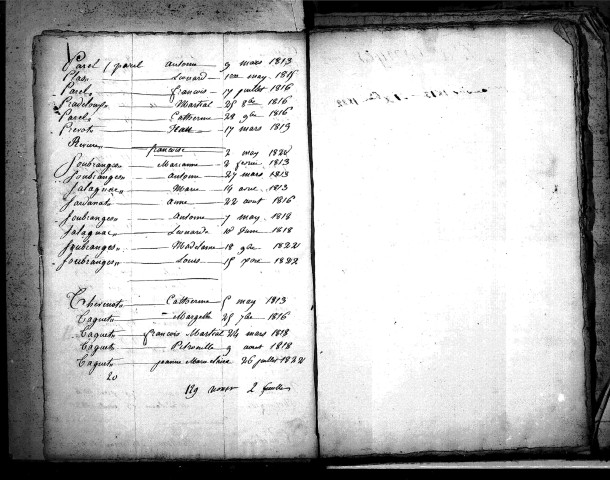 Parel / parel Antoine 9 mars 1813
Plas Leonard 1er may 1815
Parel francois 17 juillet 1816
Pradeloup Martial 25 8bre 1816
Parel Catherine 28 9bre 1816
Prevot 17 mars 1819
francoise 2 may 1822
Soubranges Marianne 2 fevrier 1813
Soubranges Antoine 27 mars 1813
Salagnac Marie 14 avril 1813
anne 22 aout 1816
Soubranges Antoine 7 may 1818
Salagnac Leonarde 10 1818
Soubranges Madelaine 18 9bre 1822
Soubranges Louis 15 1822
Thevenot Catherine 5 may 1813
Taguet Margelle 25 7bre 1816
Taguet francois Martial 24 mars 1818
Taguet Petronille 9 aout 1818
Taguet jeanne Marie 26 juillet 1822
20
129 noms 2 feuilles